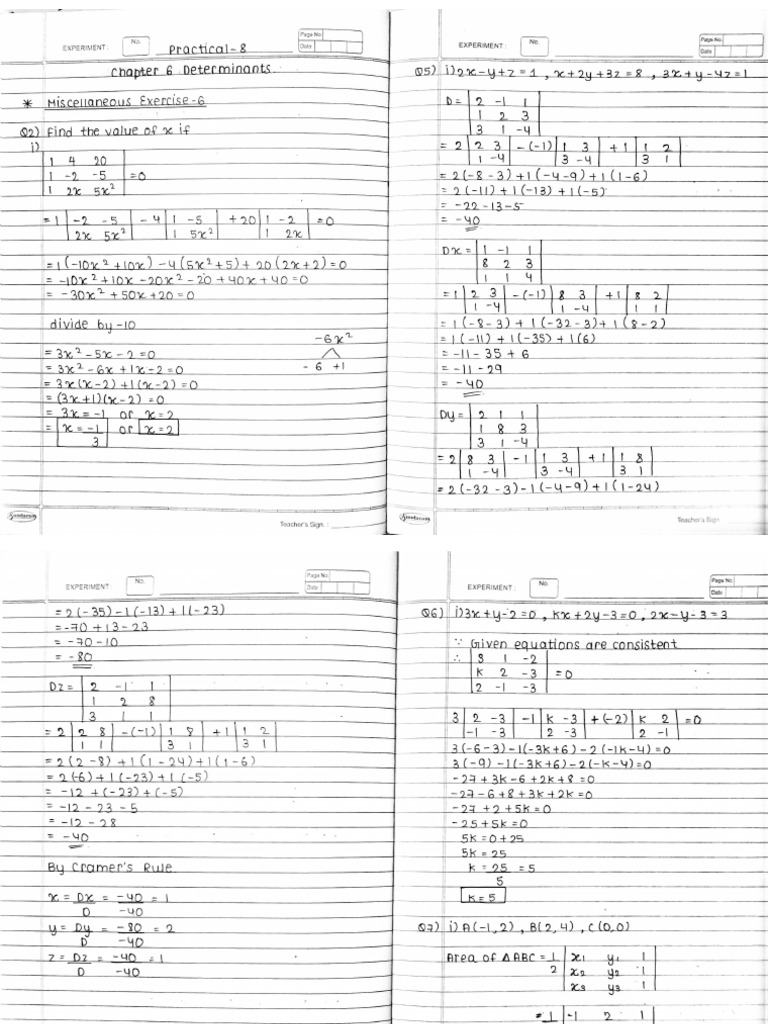 EXPERIMENT : No. Practical-8 Page No. Date
Chapter 6 Determinants
* Miscellaneous Exercise-6
Q2) Find the value of x if
i)
| 1 4 20 |
| 1 -2 -5 | =0
| 1 2x 5x² |
=1 | -2 -5 | -4 | 1 -5 | +20 | 1 -2 | =0
| 2x 5x² | | 1 5x² | | 1 2x |
=1(-10x²+10x)-4(5x²+5)+20(2x+2)=0
=-10x²+10x-20x²-20+40x+40=0
=-30x²+50x+20=0
divide by-10
-6x²
=3x²-5x-2=0
=3x²-6x+1x-2=0 -6 +1
=3x(x-2)+1(x-2)=0
=(3x+1)(x-2)=0
=3x=-1 or x=2
= x=-1 or x=2
3
Sundaram
Teacher's Sign. :
EXPERIMENT : No. Page No. Date
Q5) i)2x-y+z=1, x+2y+3z=8, 3x+y-4z=1
D= | 2 -1 1 |
| 1 2 3 |
| 3 1 -4 |
=2 | 2 3 | -(-1) | 1 3 | +1 | 1 2 |
| 1 -4 | | 3 -4 | | 3 1 |
=2(-8-3)+1(-4-9)+1(1-6)
=2(-11)+1(-13)+1(-5)
=-22-13-5
=-40
Dx= | 1 -1 1 |
| 8 2 3 |
| 1 1 4 |
=1 | 2 3 | -(-1) | 8 3 | +1 | 8 2 |
| 1 -4 | | 1 -4 | | 1 1 |
=1(-8-3)+1(-32-3)+1(8-2)
=1(-11)+1(-35)+1(6)
=-11-35+6
=-11-29
=-40
Dy= | 2 1 1 |
| 1 8 3 |
| 3 1 -4 |
=2 | 8 3 | -1 | 1 3 | +1 | 1 8 |
| 1 -4 | | 3 -4 | | 3 1 |
=2(-32-3)-1(-4-9)+1(1-24)
Sundaram
Teacher's Sign.
EXPERIMENT No. Page No. Date
=2(-35)-1(-13)+1(-23)
=-70+13-23
=-70-10
=-80
Dz= | 2 -1 1 |
| 1 2 8 |
| 3 1 1 |
=2 | 2 8 | -(-1) | 1 8 | +1 | 1 2 |
| 1 1 | | 3 1 | | 3 1 |
=2(2-8)+1(1-24)+1(1-6)
=2(-6)+1(-23)+1(-5)
=-12+(-23)+(-5)
=-12-23-5
=-12-28
=-40
By Cramer's Rule
x=Dx=-40=1
D -40
y=Dy=-80=2
D -40
z=Dz=-40=1
D -40
EXPERIMENT : No. Page No. Date
Q6) i)3x+y-2=0, kx+2y-3=0, 2x-y-3=3
∵ Given equations are consistent
∴ | 3 1 -2 |
| K 2 -3 | =0
| 2 -1 -3 |
3 | 2 -3 | -1 | K -3 | +(-2) | K 2 | =0
| -1 -3 | | 2 -3 | | 2 -1 |
3(-6-3)-1(-3k+6)-2(-1k-4)=0
3(-9)-1(-3k+6)-2(-k-4)=0
-27+3k-6+2k+8=0
-27-6+8+3k+2k=0
-27+2+5k=0
-25+5k=0
5k=0+25
5k=25
k=25=5
5
k=5
Q7) i)A(-1,2), B(2,4), C(0,0)
Area of ΔABC=1 | x1 y1 1 |
2 | x2 y2 1 |
| x3 y3 1 |
=1 | -1 2 1 |